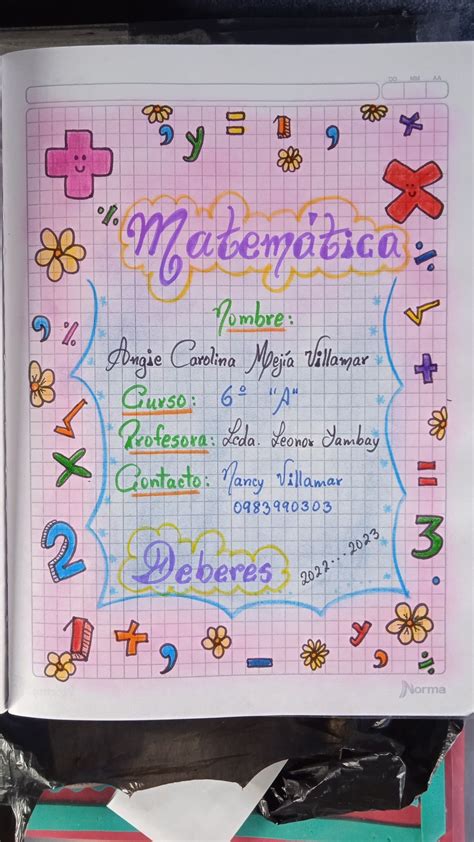 DD MM AA
Matemática
Nombre:
Angie Carolina Mejía Villamar
Curso: 6º "A"
Profesora: Lcda. Leonor Yambay
Contacto: Nancy Villamar
0983990303
Deberes 2022...2023
Norma